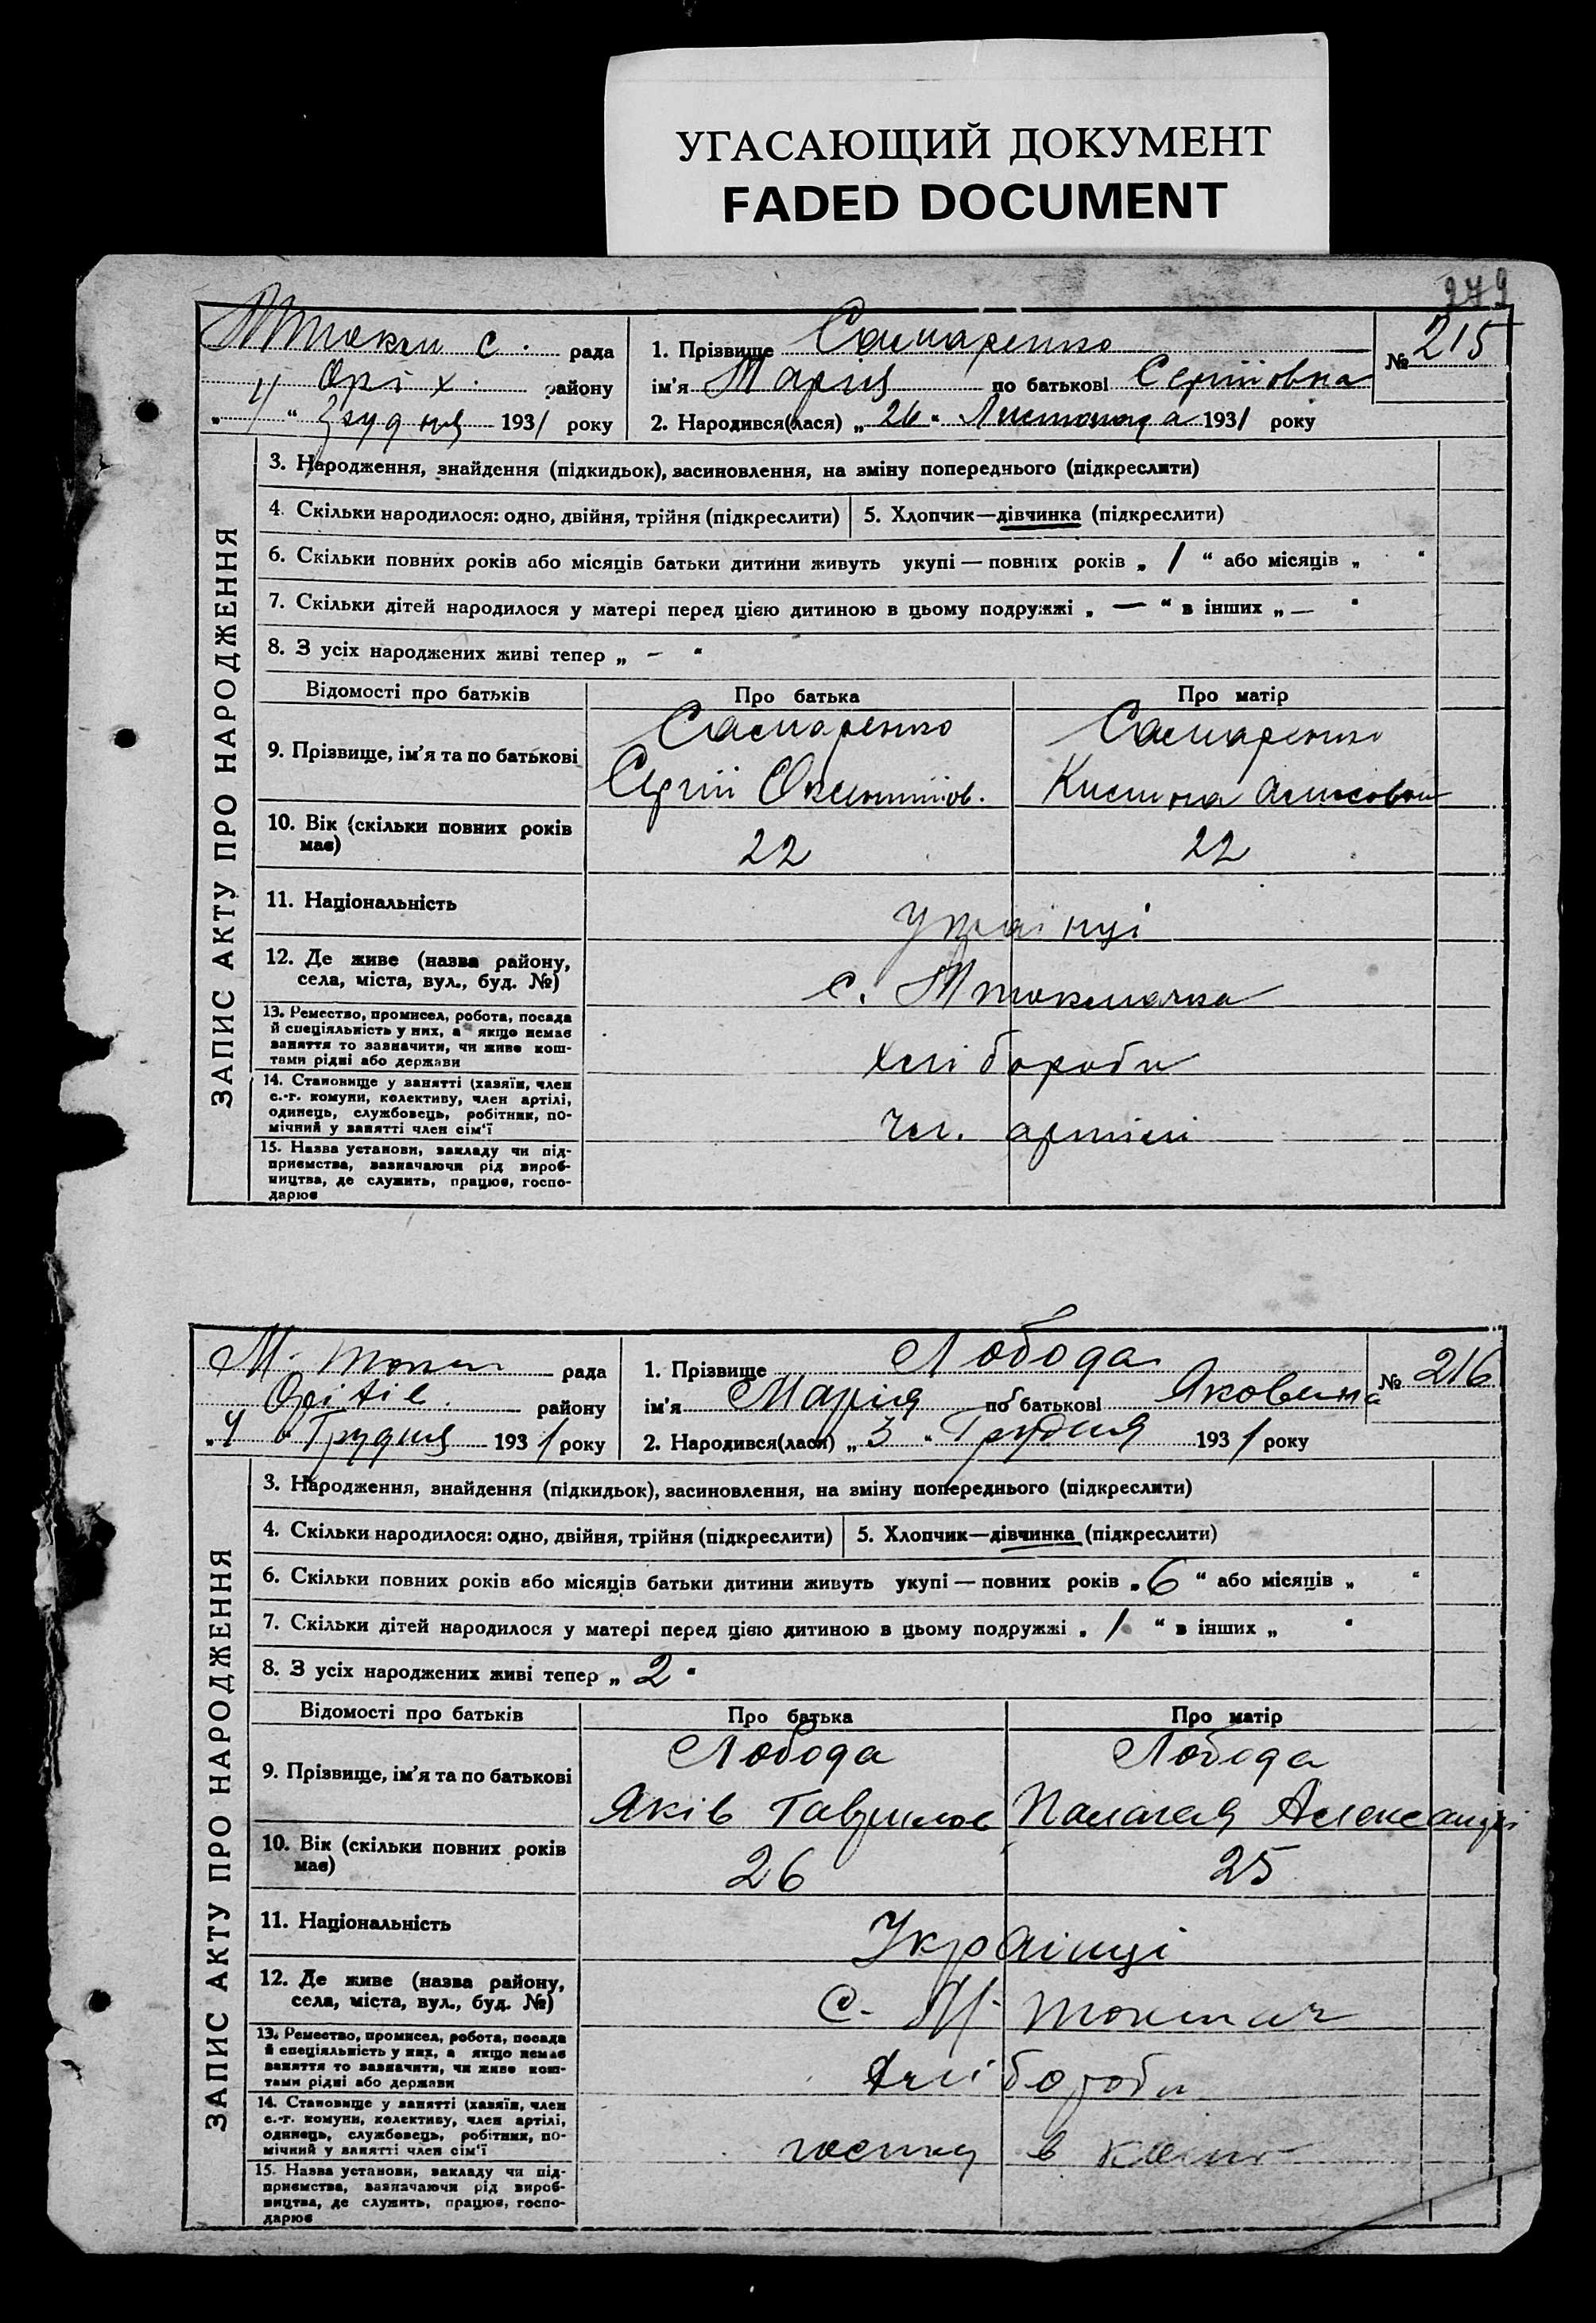 УГАСАЮЩИЙ ДОКУМЕНТ
FADED DOCUMENT
279
с. рада
Оріх. району
„ 4 “ Грудня 1931 року
1. Прізвище Самаренко
№ 215
ім'я Марія по батькові Сергіївна
2. Народився(лася) „ 26 “ Листопада 1931 року
ЗАПИС АКТУ ПРО НАРОДЖЕННЯ
3. Народження, знайдення (підкидьок), засиновлення, на зміну попереднього (підкреслити)
4. Скільки народилося: одно, двійня, трійня (підкреслити)
5. Хлопчик—дівчинка (підкреслити)
6. Скільки повних років або місяців батьки дитини живуть укупі — повних років „ 1 “ або місяців „ “
7. Скільки дітей народилося у матері перед цією дитиною в цьому подружжі „ — “ в інших „ — “
8. З усіх народжених живі тепер „ — “
Відомості про батьків
Про батька
Про матір
9. Прізвище, ім'я та по батькові
Самаренко
Сергій
Самаренко
10. Вік (скільки повних років
має)
22
22
11. Національність
Українці
12. Де живе (назва району,
села, міста, вул., буд. №)
с. М токмачка
13. Ремество, промисел, робота, посада
й спеціяльність у них, а якщо немає
заняття то зазначити, чи живе кош-
тами рідні або держави
Хлібороби
14. Становище у занятті (хазяїн, член
с.-г. комуни, колективу, член артілі,
одинець, службовець, робітник, по-
мічний у занятті член сім'ї
Чл. артілі
15. Назва установи, закладу чи під-
приємства, зазначаючи рід вироб-
ництва, де служить, працює, госпо-
дарює
М. Токм рада
району
„ 4 “ Грудня 1931 року
1. Прізвище Лобода
№ 216
ім'я Марія по батькові Яковлина
2. Народився(лася) „ 3 “ Грудня 1931 року
ЗАПИС АКТУ ПРО НАРОДЖЕННЯ
3. Народження, знайдення (підкидьок), засиновлення, на зміну попереднього (підкреслити)
4. Скільки народилося: одно, двійня, трійня (підкреслити)
5. Хлопчик—дівчинка (підкреслити)
6. Скільки повних років або місяців батьки дитини живуть укупі — повних років „ 6 “ або місяців „ “
7. Скільки дітей народилося у матері перед цією дитиною в цьому подружжі „ 1 “ в інших „ “
8. З усіх народжених живі тепер „ 2 “
Відомості про батьків
Про батька
Про матір
9. Прізвище, ім'я та по батькові
Лобода
Яків Гаврилов
Лобода
Палагея Александрі
10. Вік (скільки повних років
має)
26
25
11. Національність
Українці
12. Де живе (назва району,
села, міста, вул., буд. №)
с. М. токмач
13. Ремество, промисел, робота, посада
й спеціяльність у них, а якщо немає
заняття то зазначити, чи живе кош-
тами рідні або держави
Хлібороби
14. Становище у занятті (хазяїн, член
с.-г. комуни, колективу, член артілі,
одинець, службовець, робітник, по-
мічний у занятті член сім'ї
в
15. Назва установи, закладу чи під-
приємства, зазначаючи рід вироб-
ництва, де служить, працює, госпо-
дарює